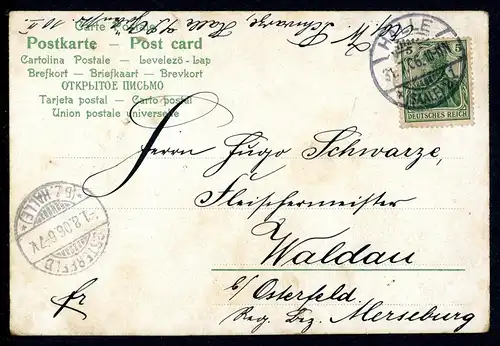 Carte
Postkarte — Post card
Cartolina Postale — Levelező-Lap
Brefkort — Briefkaart — Brevkort
ОТКРЫТОЕ ПИСЬМО
Tarjeta postal — Carto postal
Union postale universelle
W. Schwarze, Halle
HALLE
DEUTSCHES REICH
Herrn Hugo Schwarze,
Fleischermeister
Waldau
b/ Osterfeld
Reg. Bez. Merseburg
fr
OSTERFELD
1.8.06.6-7V.
(BZ. HALLE)